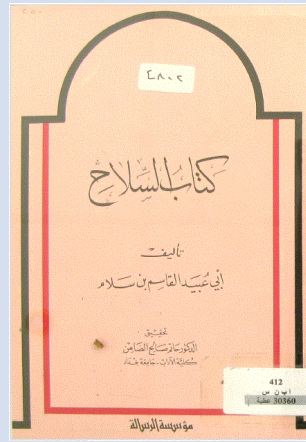 ٤٨٠٢
كتاب السلاح
تأليف
أبي عُبيد القاسم بن سلام
تحقيق
الدكتور حاتم صالح الضامن
كلية الآداب - جامعة بغداد
412
اب ن س
30360 عطية
مؤسسة الرسالة